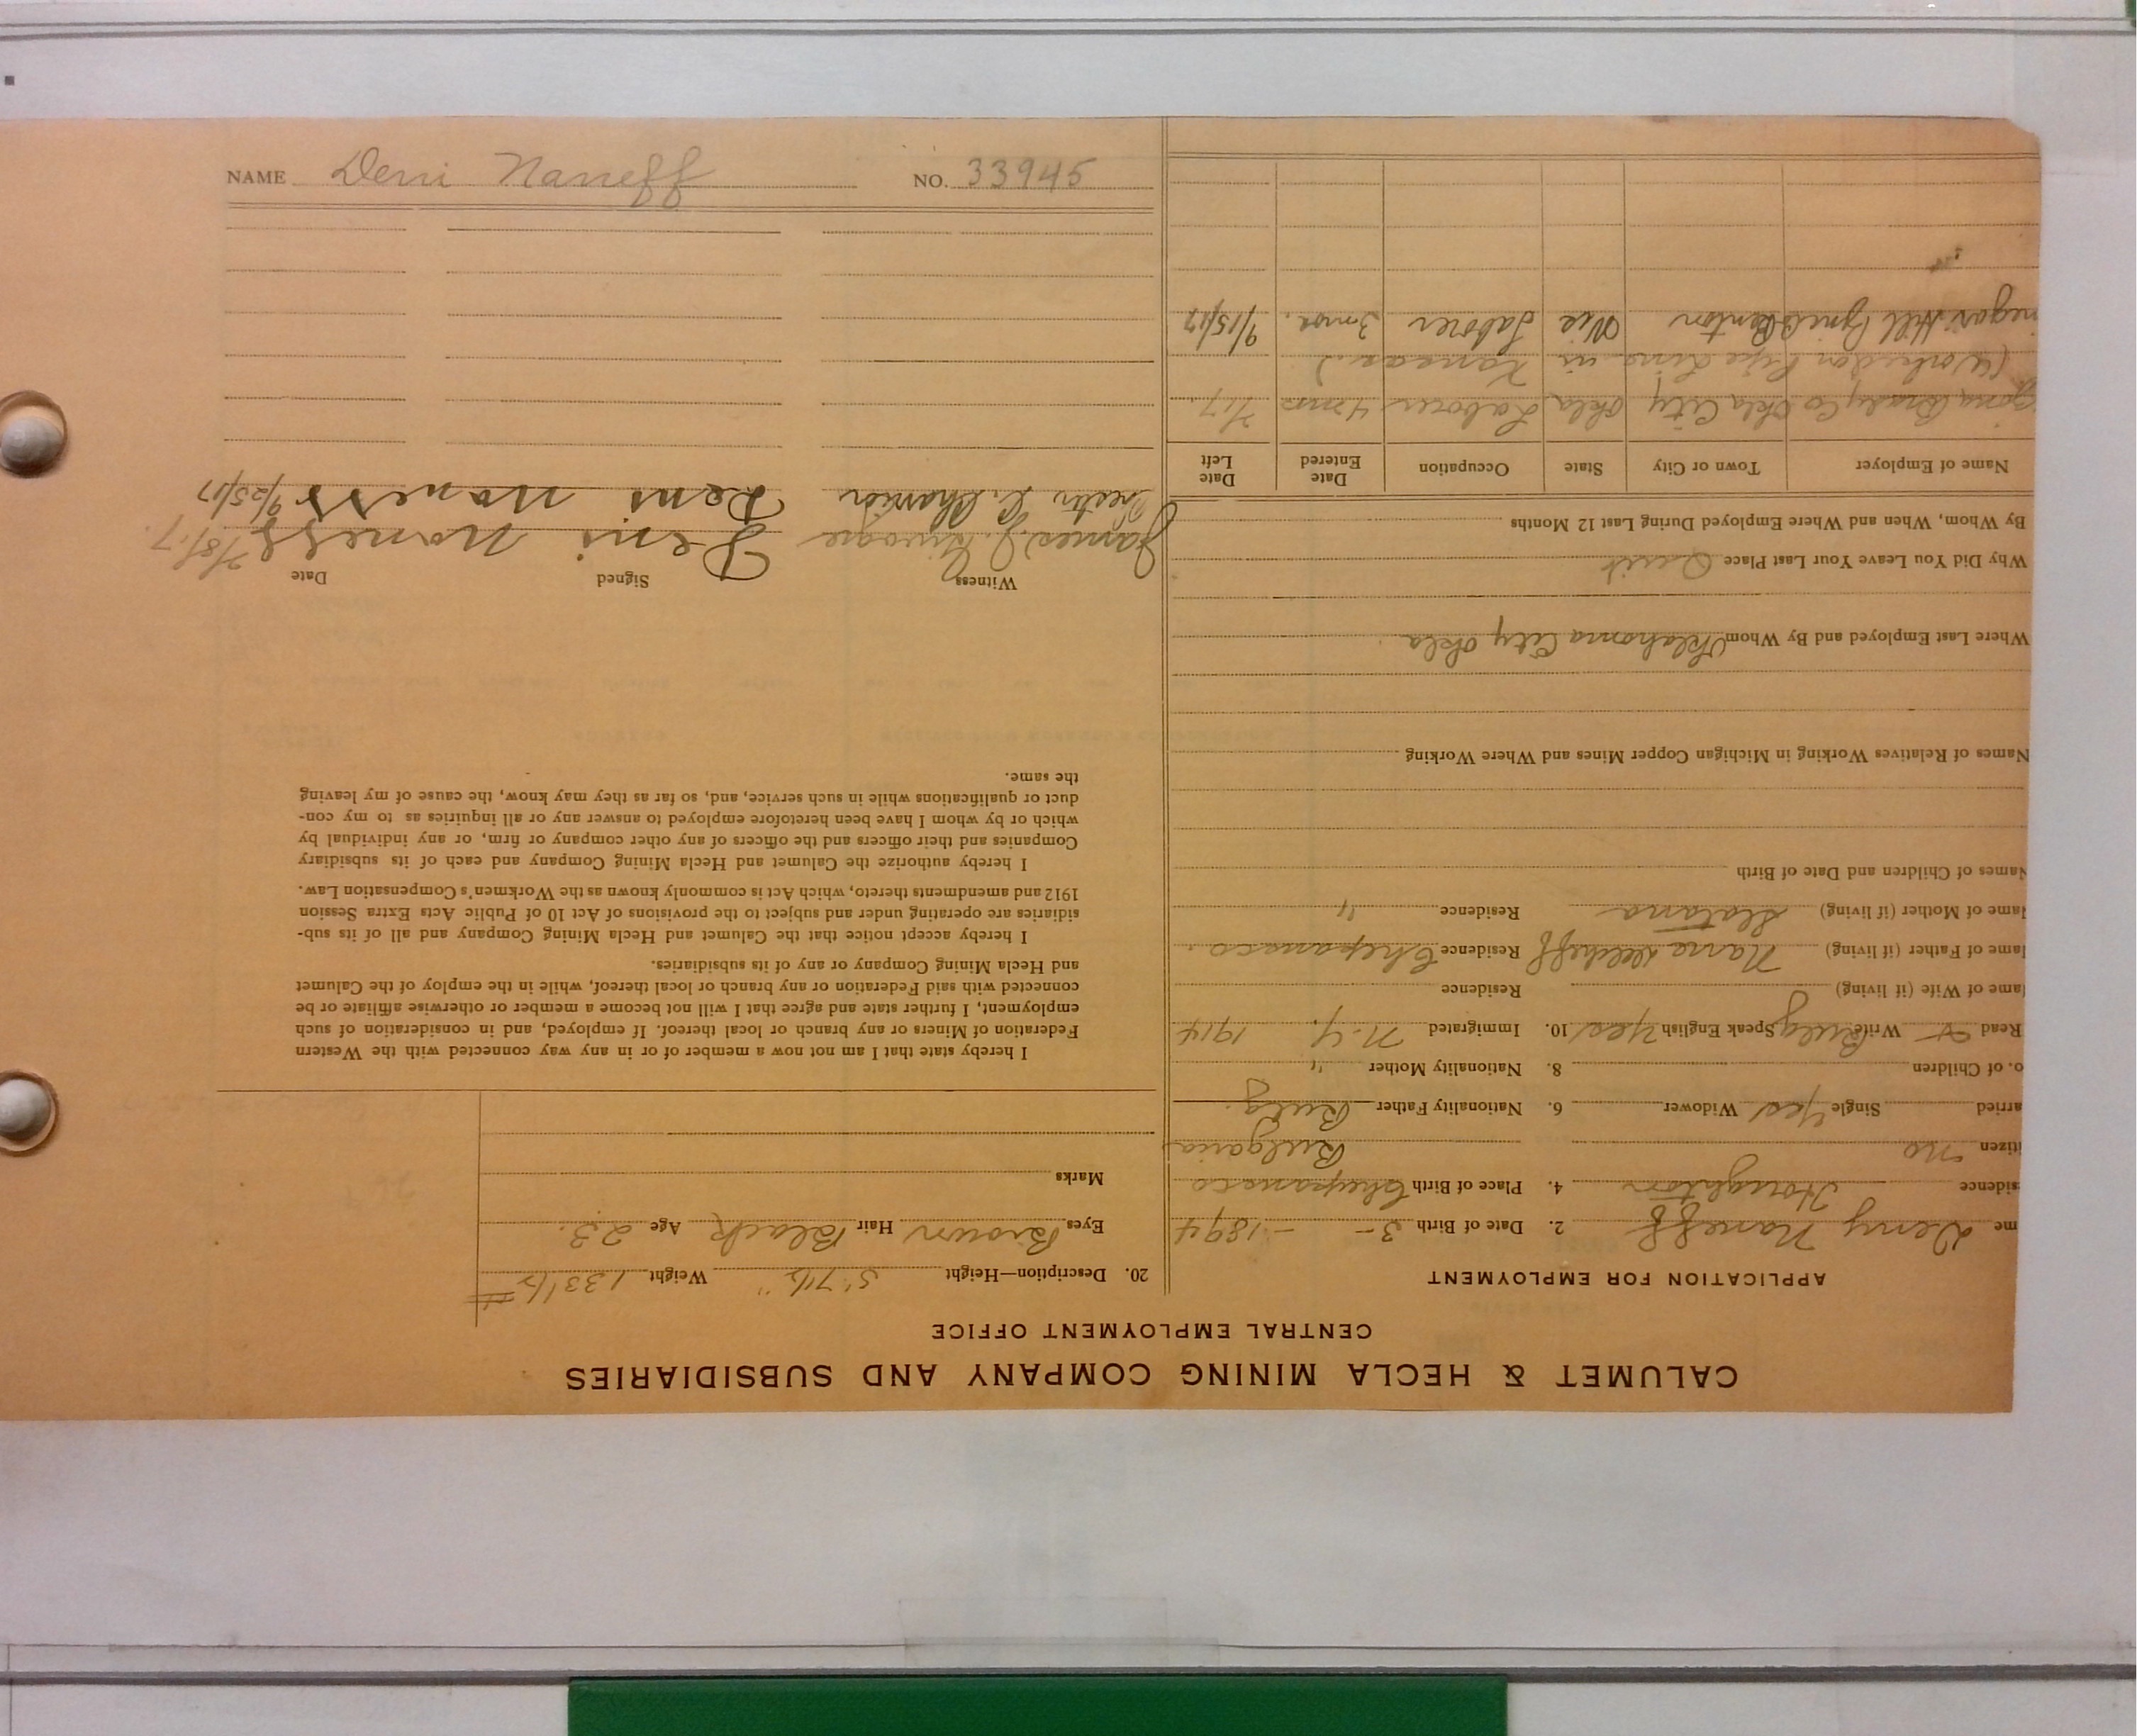 NAME Deni Naneff NO. 33945
CALUMET & HECLA MINING COMPANY AND SUBSIDIARIES
CENTRAL EMPLOYMENT OFFICE
APPLICATION FOR EMPLOYMENT
me Deny Naneff 2. Date of Birth 3- - 1894
sidence Houghton 4. Place of Birth Chepanaco
itizen No Bulgaria
arried Single Yes Widower 6. Nationality Father Bulg.
o. of Children 8. Nationality Mother "
Read Write Bulg Speak English Yes 10. Immigrated N.Y. 1914
ame of Wife (if living) Residence
ame of Father (if living) Nana Residence Chepanaco.
ame of Mother (if living) Slatana Residence "
Names of Children and Date of Birth
Names of Relatives Working in Michigan Copper Mines and Where Working
Where Last Employed and By Whom Oklahoma City Okla
Why Did You Leave Your Last Place Quit
By Whom, When and Where Employed During Last 12 Months
Name of Employer Town or City State Occupation Date Entered Date Left
Co Okla City Okla Laborer 4 mos 7/17.
(Worked on Pipe Line in Kansas.)
Hill Laborer 3 mos. 9/15/17
20. Description—Height 5' 7½" Weight 133½ #
Eyes Brown Hair Black Age 23.
Marks
I hereby state that I am not now a member of or in any way connected with the Western
Federation of Miners or any branch or local thereof. If employed, and in consideration of such
employment, I further state and agree that I will not become a member or otherwise affiliate or be
connected with said Federation or any branch or local thereof, while in the employ of the Calumet
and Hecla Mining Company or any of its subsidiaries.
I hereby accept notice that the Calumet and Hecla Mining Company and all of its sub-
sidiaries are operating under and subject to the provisions of Act 10 of Public Acts Extra Session
1912 and amendments thereto, which Act is commonly known as the Workmen's Compensation Law.
I hereby authorize the Calumet and Hecla Mining Company and each of its subsidiary
Companies and their officers and the officers of any other company or firm, or any individual by
which or by whom I have been heretofore employed to answer any or all inquiries as to my con-
duct or qualifications while in such service, and, so far as they may know, the cause of my leaving
the same.
Witness Signed Date
James J. Deni Naneff 7/8/17.
Deni Naneff 9/25/17